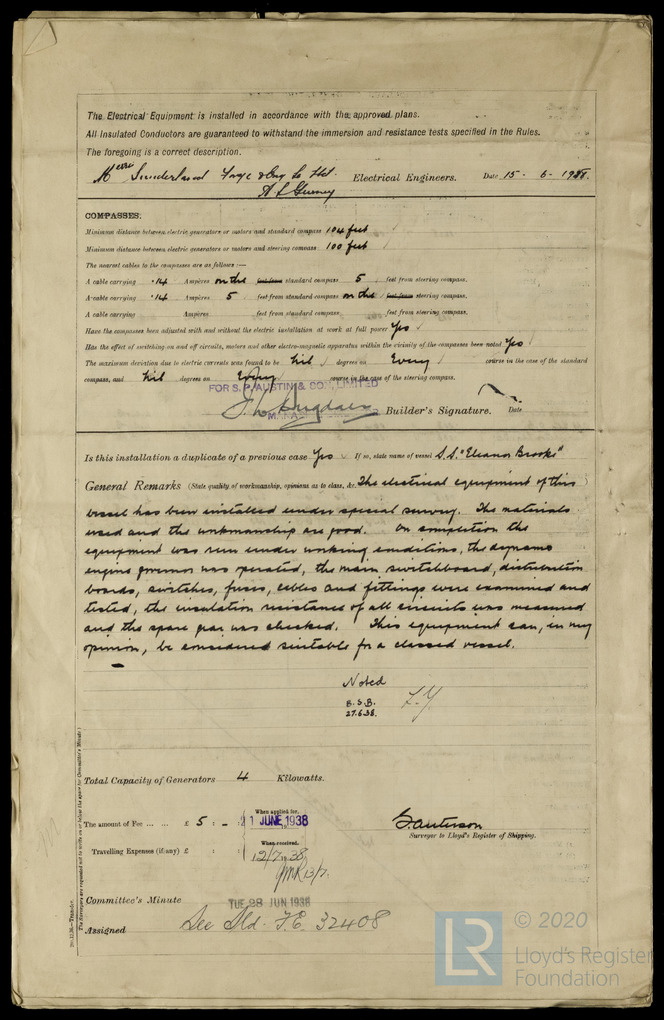 The Electrical Equipment is installed in accordance with the approved plans.
All Insulated Conductors are guaranteed to withstand the immersion and resistance tests specified in the Rules.
The foregoing is a correct description.
Sunderland Forge & Eng Co Ltd.
Electrical Engineers. Date 15 - 6 - 1938.
COMPASSES.
Minimum distance between electric generators or motors and standard compass 104 feet
Minimum distance between electric generators or motors and steering compass 100 feet
The nearest cables to the compasses are as follows:—
A cable carrying .14 Ampères on the feet from standard compass 5 feet from steering compass.
A cable carrying .14 Ampères 5 feet from standard compass on the feet from steering compass.
A cable carrying Ampères feet from standard compass feet from steering compass.
Have the compasses been adjusted with and without the electric installation at work at full power Yes
Has the effect of switching on and off circuits, motors and other electro-magnetic apparatus within the vicinity of the compasses been noted Yes
The maximum deviation due to electric currents was found to be Nil degrees on Every course in the case of the standard
compass, and Nil degrees on Every course in the case of the steering compass.
FOR S. P. AUSTIN & SON, LIMITED
Builder's Signature. Date
Is this installation a duplicate of a previous case Yes If so, state name of vessel S.S. "Eleanor Brooke"
General Remarks (State quality of workmanship, opinions as to class, &c. The electrical equipment of this
vessel has been installed under special survey. The materials
used and the workmanship are good. On completion the
equipment was run under working conditions, the dynamo
engine governor was operated, the main switchboard, distribution
boards, switches, fuses, cables and fittings were examined and
tested, the insulation resistance of all circuits was measured
and the spare gear was checked. This equipment can, in my
opinion, be considered suitable for a classed vessel.
Noted
B.S.B.
27.6.38.
Total Capacity of Generators 4 Kilowatts.
The amount of Fee ... ... £ 5 : - : When applied for, 21 JUNE 1938
Surveyor to Lloyd's Register of Shipping.
Travelling Expenses (if any) £ : : When received, 12/7 1938
13/7.
Committee's Minute TUE 28 JUN 1938
Assigned See Sld. F.E. 32408
(The Surveyors are requested not to write on or below the space for Committee's Minute.)
© 2020
LR
Lloyd's Register
Foundation